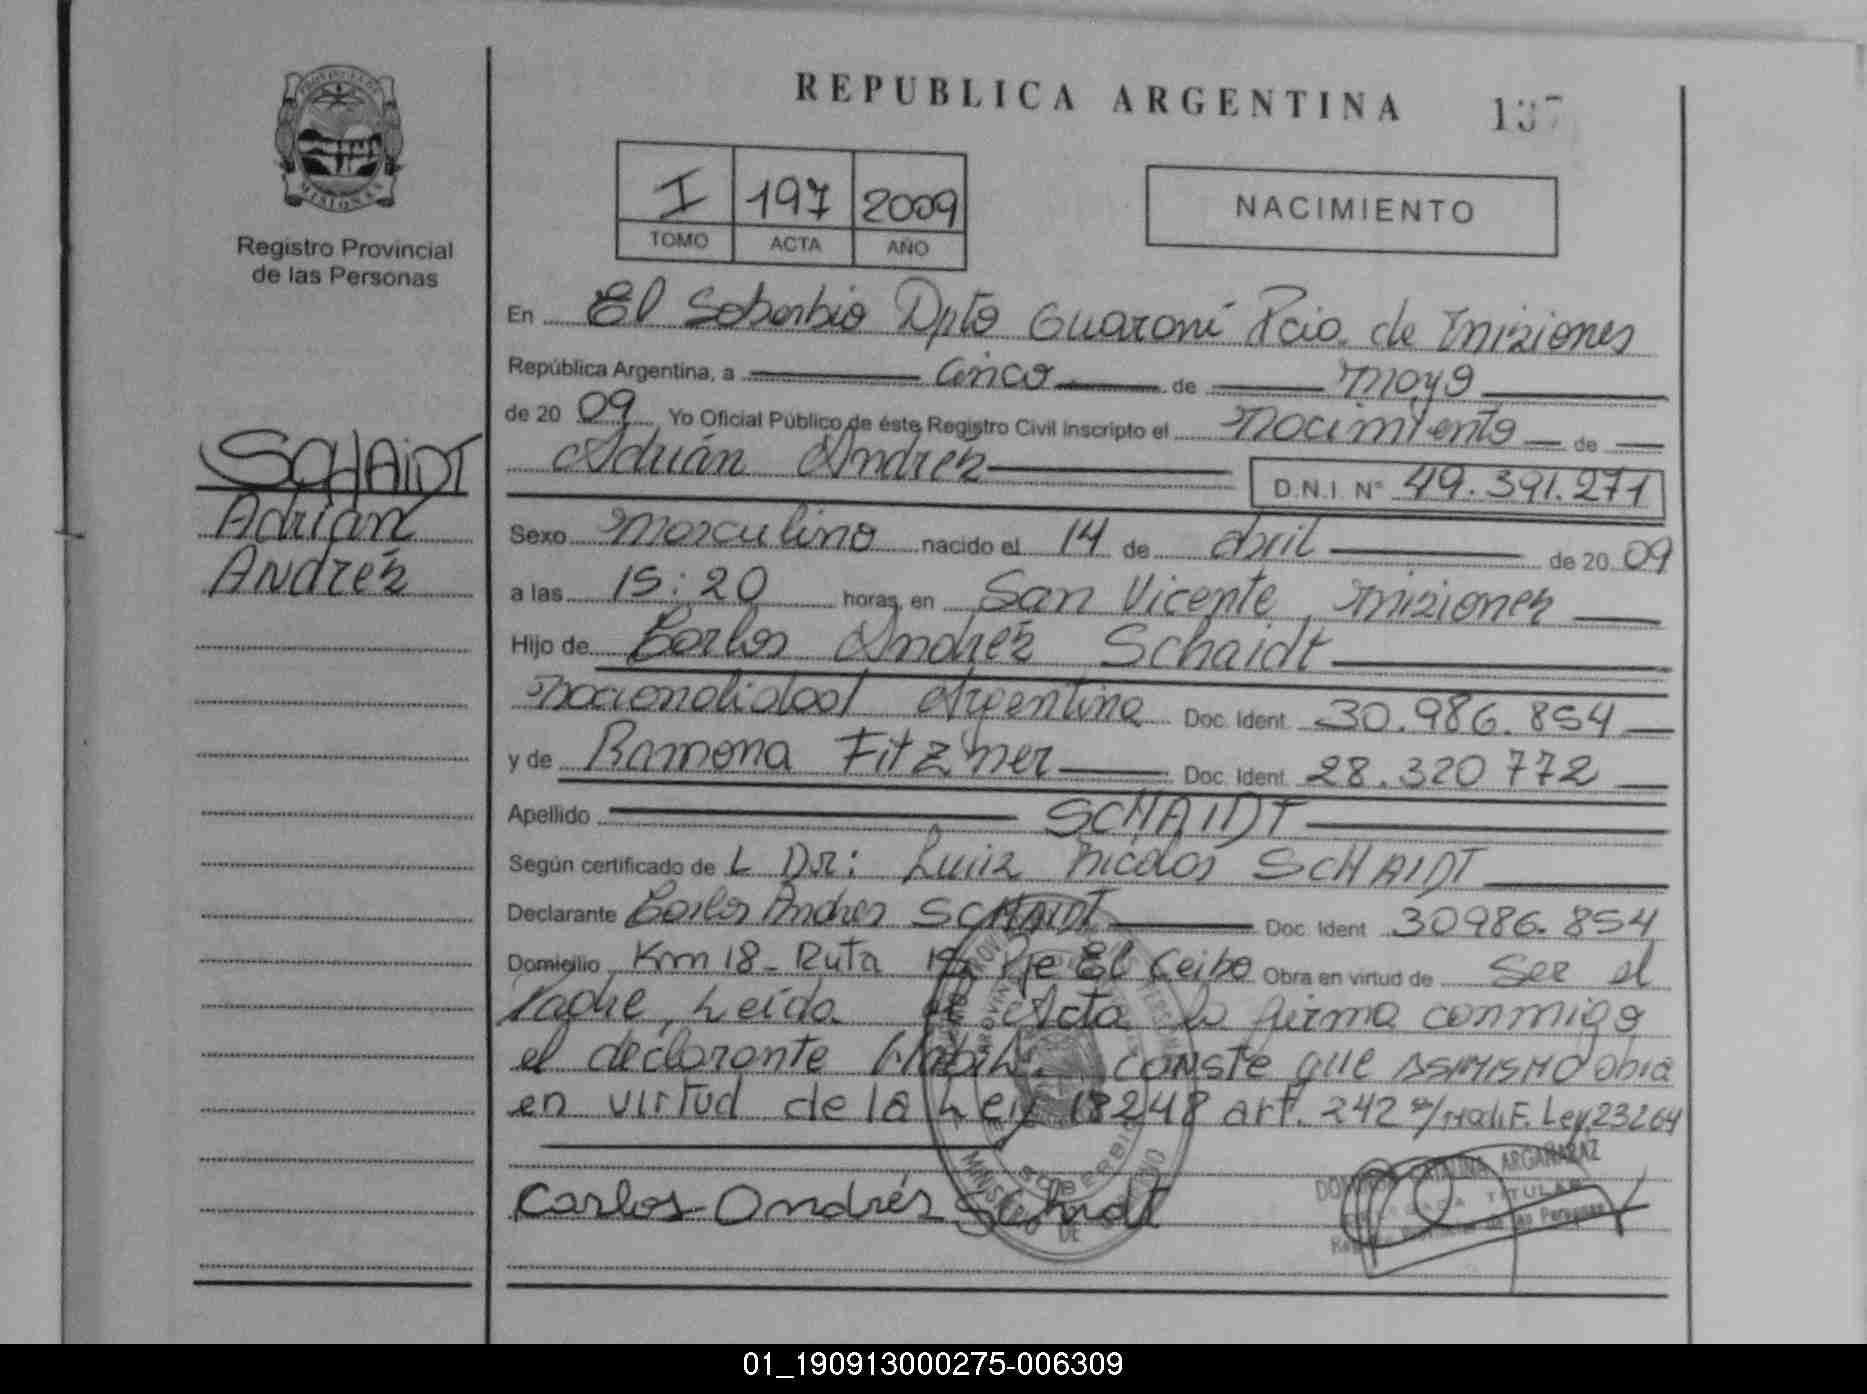 REPUBLICA ARGENTINA 137
PROVINCIA DE
MISIONES
Registro Provincial
de las Personas
I 197 2009
TOMO ACTA AÑO
NACIMIENTO
SCHAIDT
Adrián
Andrés
En El Soberbio Dpto Guaraní Pcia. de Misiones
República Argentina, a cinco de mayo
de 20 09 Yo Oficial Público de éste Registro Civil inscripto el nacimiento de
Adrián Andrés D.N.I. N° 49.391.271
Sexo masculino nacido el 14 de abril de 20 09
a las 15:20 horas, en San Vicente, Misiones
Hijo de Carlos Andrés Schaidt
nacionalidad Argentina Doc. Ident. 30.986.854
y de Ramona Fitzner Doc. Ident. 28.320772
Apellido SCHAIDT
Según certificado de L Dr: Luiz Nicolas SCHAIDT
Declarante Carlos Andres SCHAIDT Doc. Ident 30986.854
Domicilio Km 18 - Ruta Pje El Ceibo Obra en virtud de Ser el
Padre, Leída el Acta la firma conmigo
el declarante Habil. CONSTE que ASIMISMO obra
en virtud de la Ley 18248 art. 242 s/ Modif. Ley 23264
Carlos Andrés Schaidt
CATALINA ARGAÑARAZ
TITULAR
de las Personas
MINISTERIO DE
SOBERBIO
01_190913000275-006309